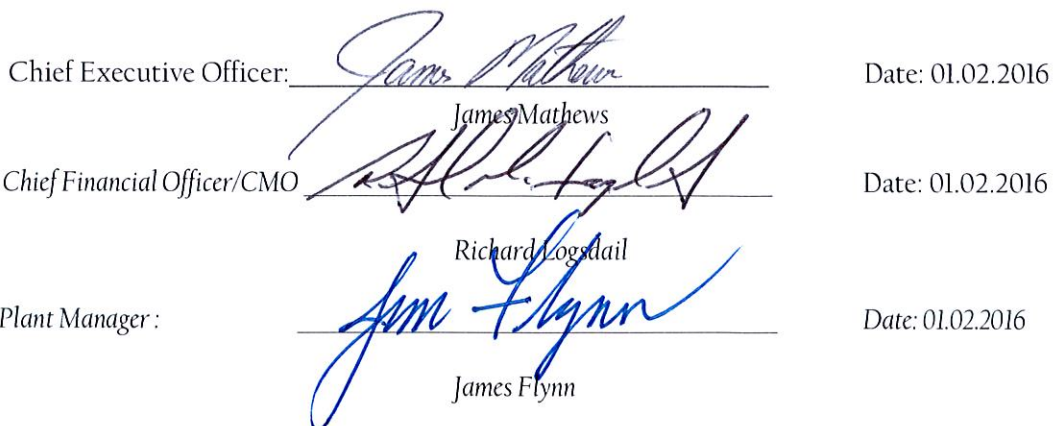 Chief Executive Officer: James Mathews Date: 01.02.2016
James Mathews
Chief Financial Officer/CMO Date: 01.02.2016
Richard Logsdail
Plant Manager : Jim Flynn Date: 01.02.2016
James Flynn